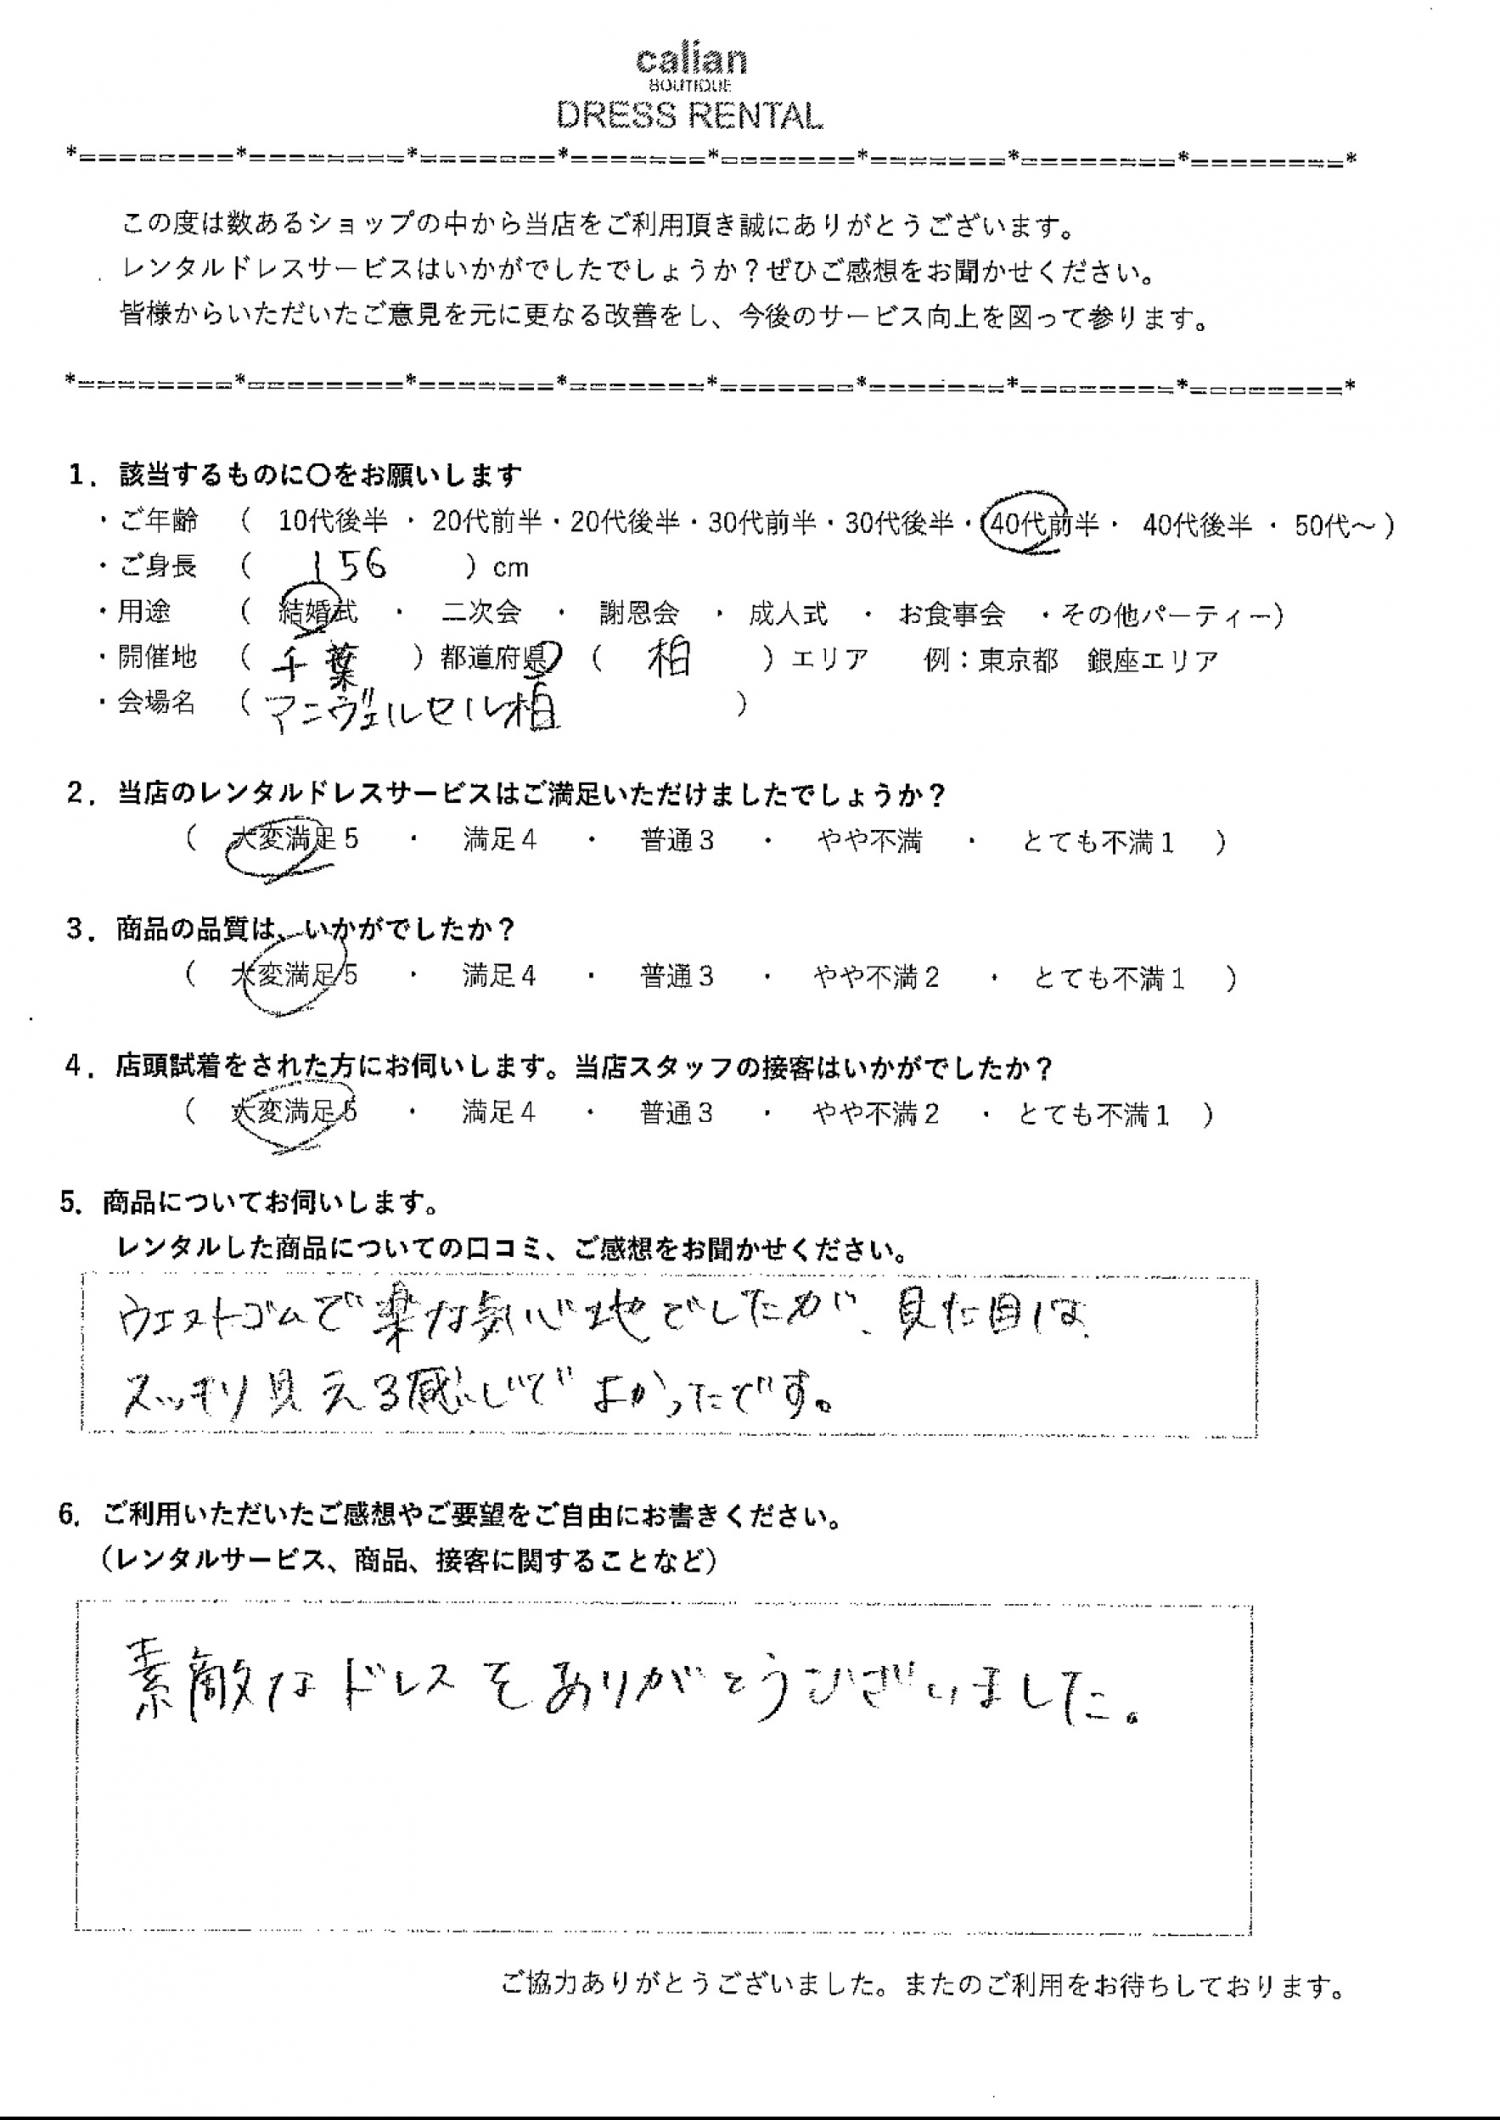 calian
BOUTIQUE
DRESS RENTAL
*========*========*=======*=======*=======*=======*========*========*
この度は数あるショップの中から当店をご利用頂き誠にありがとうございます。
レンタルドレスサービスはいかがでしたでしょうか？ぜひご感想をお聞かせください。
皆様からいただいたご意見を元に更なる改善をし、今後のサービス向上を図って参ります。
*========*========*=======*=======*=======*=======*========*========*
1．該当するものに〇をお願いします
・ご年齢　（　10代後半 ・ 20代前半・20代後半・30代前半・30代後半・40代前半・ 40代後半 ・ 50代～）
・ご身長　（　156　）cm
・用途　（　結婚式　・　二次会　・　謝恩会　・　成人式　・　お食事会　・その他パーティー）
・開催地　（　千葉　）都道府県　（　柏　）エリア　例：東京都　銀座エリア
・会場名　（アニヴェルセル柏　）
2．当店のレンタルドレスサービスはご満足いただけましたでしょうか？
（　大変満足５　・　満足４　・　普通３　・　やや不満　・　とても不満１　）
3．商品の品質は、いかがでしたか？
（　大変満足５　・　満足４　・　普通３　・　やや不満２　・　とても不満１　）
4．店頭試着をされた方にお伺いします。当店スタッフの接客はいかがでしたか？
（　大変満足５　・　満足４　・　普通３　・　やや不満２　・ とても不満１　）
5．商品についてお伺いします。
レンタルした商品についての口コミ、ご感想をお聞かせください。
ウエストゴムで楽な気心地でしたが、見た目は
スッキリ見える感じでよかったです。
6．ご利用いただいたご感想やご要望をご自由にお書きください。
（レンタルサービス、商品、接客に関することなど）
素敵なドレスをありがとうございました。
ご協力ありがとうございました。またのご利用をお待ちしております。